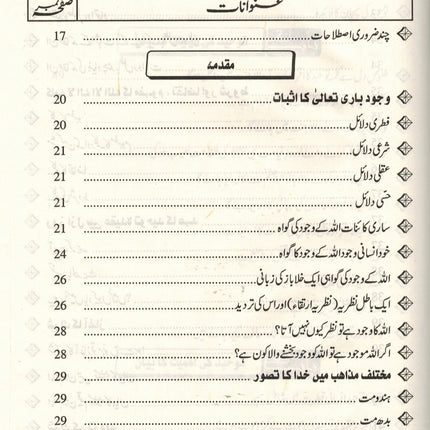 عنوانات صفحہ نمبر
چند ضروری اصطلاحات 17
مقدمہ
وجود باری تعالیٰ کا اثبات 20
فطری دلائل 20
شرعی دلائل 21
عقلی دلائل 21
حسی دلائل 21
ساری کائنات اللہ کے وجود کی گواہ 21
خود انسانی وجود اللہ کے وجود کا گواہ 24
اللہ کے وجود کی گواہی ایک خلا باز کی زبانی 26
ایک باطل نظریہ (نظریہ ارتقاء) اور اس کی تردید 26
اللہ کا وجود ہے تو نظر کیوں نہیں آتا؟ 28
اگر اللہ موجود ہے تو اللہ کو وجود بخشنے والا کون ہے؟ 28
مختلف مذاہب میں خدا کا تصور 29
ہندومت 29
بدھ مت 29